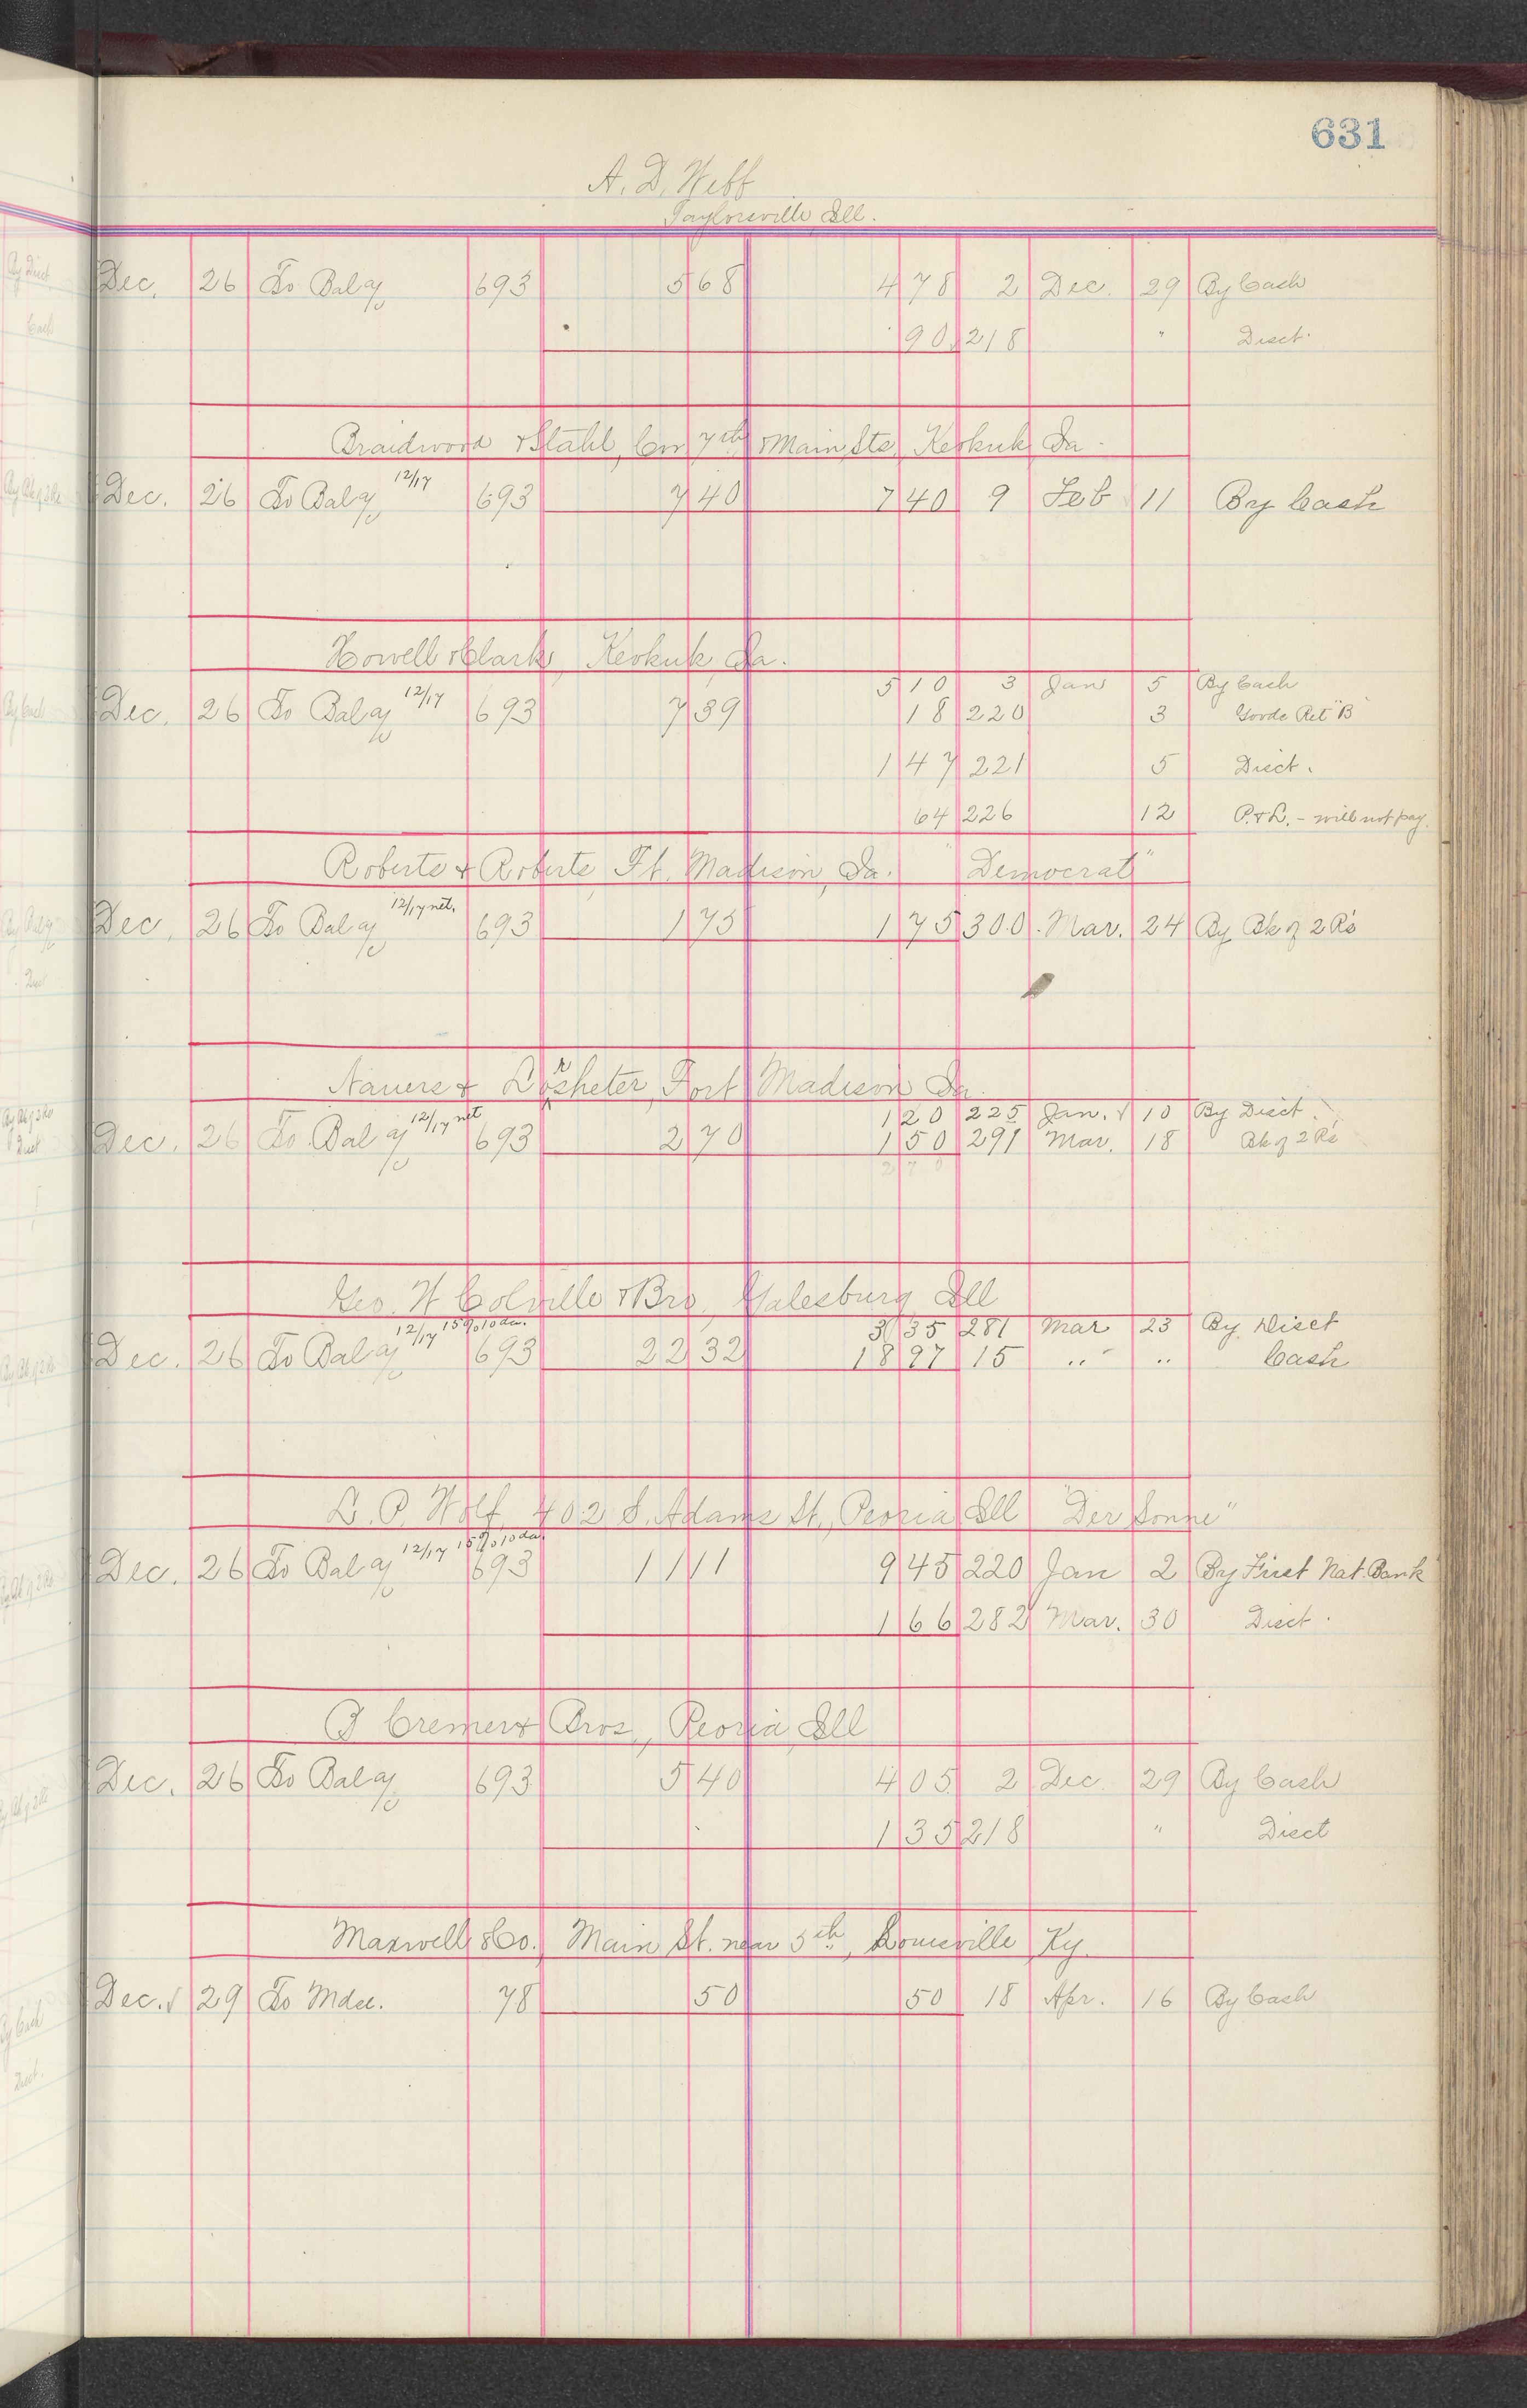 631
A. D. Webb
Taylorsville Ill.
Dec. 26 To Bal a/c 693 5 68 4 78 2 Dec. 29 By Cash
90 218 " Disct.
Braidwood & Stahl, Cor 7th & Main Sts, Keokuk Ia.
Dec. 26 To Bal a/c 12/17 693 7 40 7 40 9 Feb 11 By Cash
Howell & Clark, Keokuk, Ia.
5 10 3 Jan 5 By Cash
Dec. 26 To Bal a/c 12/17 693 7 39 18 220 3 Goods Ret "B"
1 47 221 5 Disct.
64 226 12 P. & L. - will not pay.
Roberts & Roberts Ft. Madison, Ia. "Democrat"
Dec. 26 To Bal a/c 12/17 net. 693 1 75 1 75 300 Mar. 24 By Bk of 2 R's
Nauers & Lorsheter, Fort Madison Ia.
1 20 225 Jan. 10 By Disct.
Dec. 26 To Bal a/c 12/17 net 693 2 70 1 50 291 Mar. 18 Bk of 2 R's
2 7 0
Geo. W Colville & Bro., Galesburg Ill
3 35 281 Mar 23 By Disct
Dec. 26 To Bal a/c 12/17 15% 10 da. 693 22 32 18 97 15 " " Cash
L. P. Wolf, 402 S. Adams St., Peoria Ill "Der Sonne"
Dec. 26 To Bal a/c 12/17 15% 10 da. 693 11 11 9 45 220 Jan 2 By First Nat. Bank
1 66 282 Mar. 30 Disct.
B Cremer & Bros., Peoria, Ill
Dec. 26 To Bal a/c 693 5 40 4 05 2 Dec. 29 By Cash
1 35 218 " Disct
Maxwell & Co., Main St. near 5th, Louisville, Ky.
Dec. 29 To Mdse. 78 50 50 18 Apr. 16 By Cash